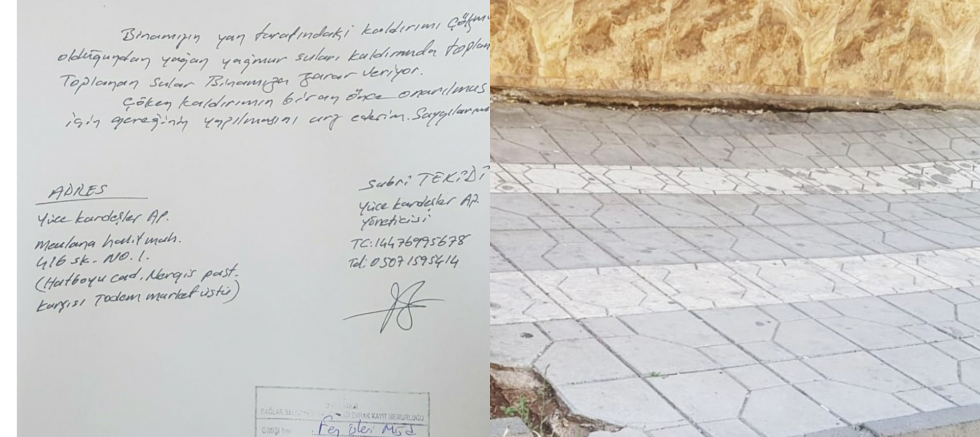 Binamızın yan tarafındaki kaldırımı çökm
olduğundan yağan yağmur suları kaldırımda toplan
Toplanan sular Binamıza zarar veriyor.
Çöken kaldırımın biran önce onarılması
için gereğinin yapılmasını arz ederim. Saygılarım
ADRES
Yüce kardeşler AP.
Mevlana halit mah.
416 sk. NO.1.
(Hatboyu cad. Nergis past.
karşısı Todem market üstü)
Sabri TEKİDİ
Yüce kardeşler AP.
Yöneticisi
TC:14476995678
Tel: 05071595414
EVRAK KAYIT
Fen işleri Müd